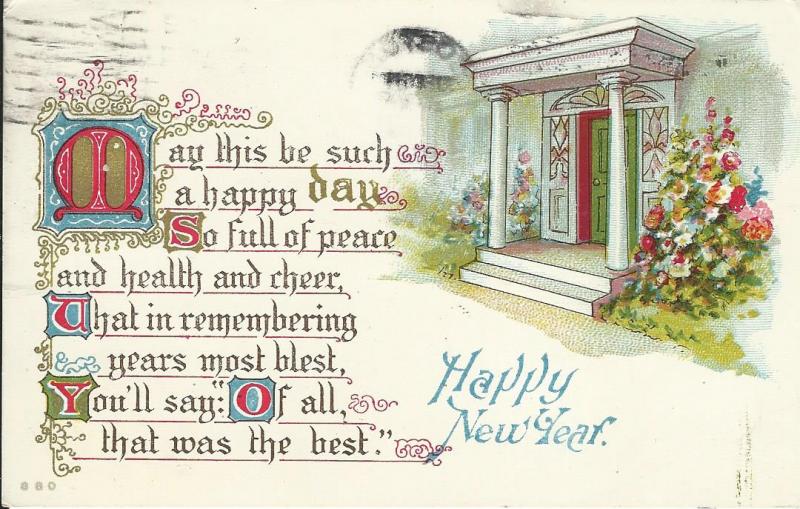 May this be such
a happy day
So full of peace
and health and cheer,
That in remembering
years most blest,
You'll say: "Of all,
that was the best."
Happy
New Year.
880